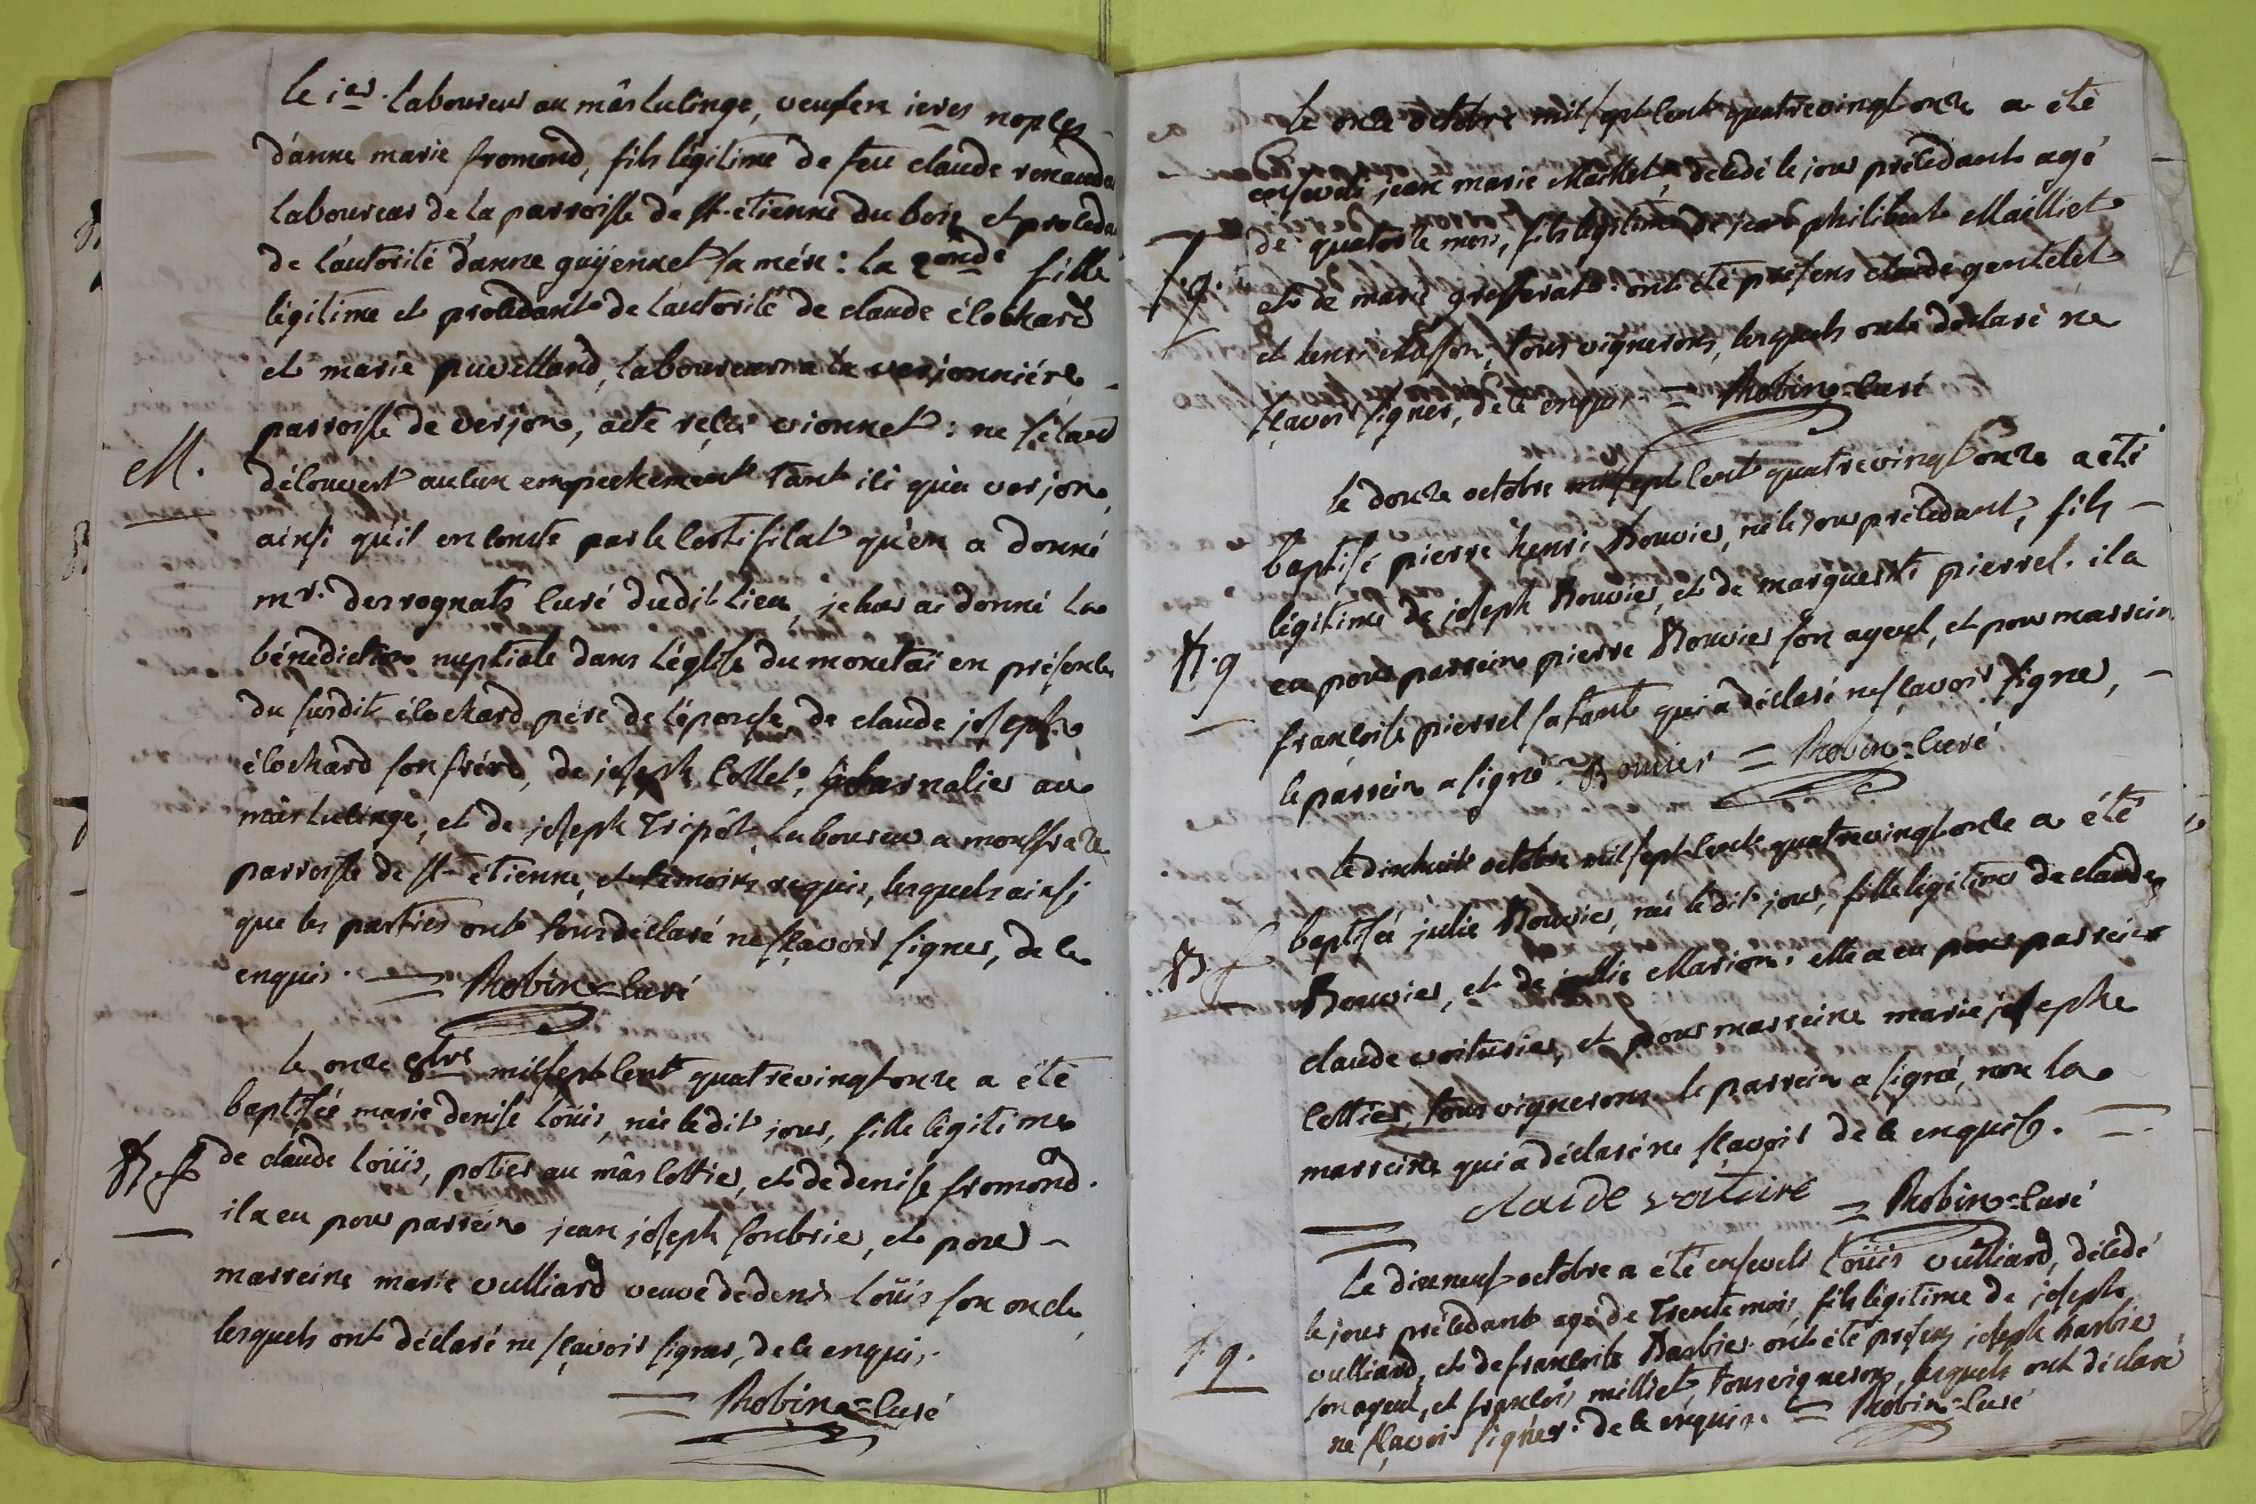 le 1er. laboureur au mâs lulinge, veuf en 1eres nopces
d'anne marie fromond, fils légitime de feu claude renaud
laboureur de la parroisse de st. étienne du bois et procéda
de l'autorité d'anne guÿennet sa mére : la 2onde fille
légitime et procédante de l'autorité de claude élochard
et marie puvilland, laboureurs a la verjonniére
parroisse de verjon, acte reçu vionnet : ne s'étant
découvert aucun empechement tant ici qu'a verjon,
ainsi qu'il en conste par le certificat qu'en a donné
mr. desrognats curé dudit lieu, je leur ai donné la
bénédiction nuptiale dans l'église du monetaï en présence
du susdit élochard pére de l'épouse, de claude joseph
élochard son frére, de joseph collet, journalier au
mâs lulinge, et de joseph tripôt, laboureur a
parroisse de st étienne, et témoins requis, lesquels ainsi
que les parties ont tous déclaré ne sçavoir signer, de ce
enquis. = Robin = curé
M.
le onze 8bre mil sept cent quatrevingt onze a été
baptisée marie denise loüis, née ledit jour, fille légitime
B. f de claude loüis, potier au mâs cottier, et de denise fromond.
il a eu pour parrein jean joseph soubrié, et pour
marreine marie vulliard veuve de denis loüis son oncle,
lesquels ont déclaré ne sçavoir signer, de ce enquis.
= Robin = curé
le onze octobre mil sept cent quatrevingt onze a été
enseveli jean marie Maillet, décédé le jour précédant agé
de quatorze mois, fils légitime de jean philibert Mailliet
S. g. et de marie grosferat. ont été présens claude gentelet
et henri Masson, tous vignerons, lesquels ont déclaré ne
sçavoir signer, de ce enquis = Robin = curé
le douze octobre mil sept cent quatrevingt onze a été
baptisé pierre henri Bouvier, né le jour précédant, fils
légitime de joseph Bouvier, et de marguerite pierrel. il a
B. g eu pour parrein pierre Bouvier son ayeul, et pour marrein
françoise pierrel sa tante qui a déclaré ne sçavoir signer,
le parrein a signé. Bouvier = Robin = curé
le dixhuit octobre mil sept cent quatrevingt onze a été
baptisée julie Bouvier, née ledit jour, fille légitime de claude
B. f Bouvier, et de julie Marion. elle a eu pour parrein
claude voiturier, et pour marreine marie josephe
cottier, tous vignerons. le parrein a signé, non la
marreine qui a déclaré ne sçavoir de ce enquise. =
= claude voiturie = Robin = curé
le dixneuf octobre a été enseveli loüis vulliard, décédé
le jour précédant agé de trente mois, fils légitime de joseph
S g. vulliard, et de françoise Barbier. ont été présens joseph barbier
son ayeul, et françois milliet, tous vignerons, lesquels ont déclaré
ne sçavoir signer. de ce enquis. = Robin = curé